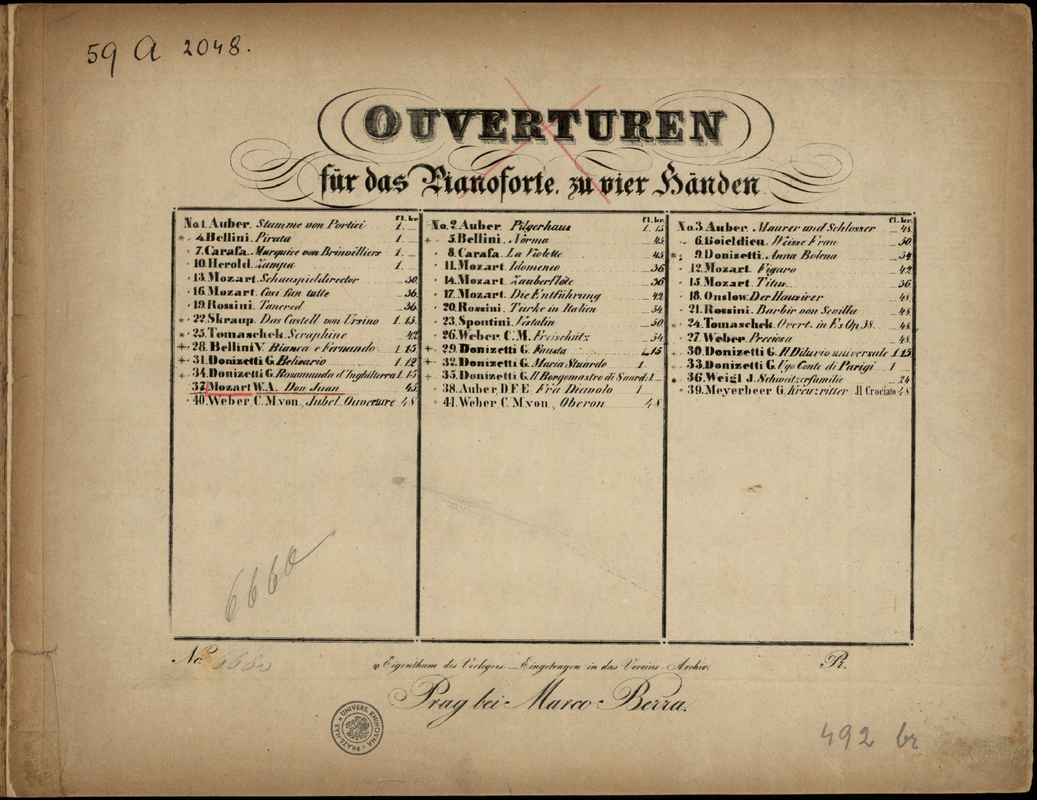 59 A 2048.
OUVERTUREN
für das Pianoforte, zu vier Händen
fl. kr.
No 1. Auber. Stumme von Portici 1. _
* 4. Bellini. Pirata 1. _
7. Carafa. Marquise von Brinvilliers 1. _
10. Herold. Zampa 1. _
13. Mozart. Schauspieldirector 30
16. Mozart. Cosi fan tutte 36
19. Rossini. Tancred 36
* 22. Skraup. Das Castell von Ursino 1. 15
* 25. Tomaschek. Seraphine 42
* 28. Bellini V. Bianca e Fernando 1 15
* 31. Donizetti G. Belisario 1. 12
* 34. Donizetti G. Rosamunda d'Inghilterra 1. 15
37. Mozart W.A. Don Juan 45
40. Weber, C. M. von, Jubel Ouverture 48
fl. kr.
No. 2. Auber. Pilgerhaus 1. 15
* 5. Bellini. Norma 45
8. Carafa. La Violette 45
11. Mozart. Idomeneo 36
14. Mozart. Zauberflöte 36
17. Mozart. Die Entführung 42
20. Rossini. Türke in Italien 54
23. Spontini. Vestalin 50
26. Weber. C. M. Freischütz 54
* 29. Donizetti G. Fausta 1. 15
* 32. Donizetti G. Maria Stuardo 1.
* 35. Donizetti G. Il Borgomastro di Saard: 1 _
38. Auber, D F E. Fra Diavolo 1
41. Weber, C. M. von, Oberon 48
fl. kr.
No. 3. Auber. Maurer und Schlosser 48
6. Boieldieu. Weisse Frau 50
* 9. Donizetti. Anna Bolena 54
12. Mozart. Figaro 42
15. Mozart. Titus 36
18. Onslow. Der Hausirer 48
21. Rossini. Barbir von Sevilla 48
* 24. Tomaschek. Overt. in Es Op 38. 48
27. Weber. Preciosa 48
* 30. Donizetti G. Il Diluvio universale 1. 15
* 33. Donizetti G. Ugo Conte di Parigi 1
* 36. Weigl J. Schweitzerfamilie 24
* 39. Meyerbeer G. Kreuzritter Il Crociato 48
6660
No. 6660
Eigenthum des Verlegers. _ Eingetragen in das Vereins-Archiv.
Pr.
Prag bei Marco Berra.
UNIVERS. KNIHOVNA PRAŽSKÁ
492 br